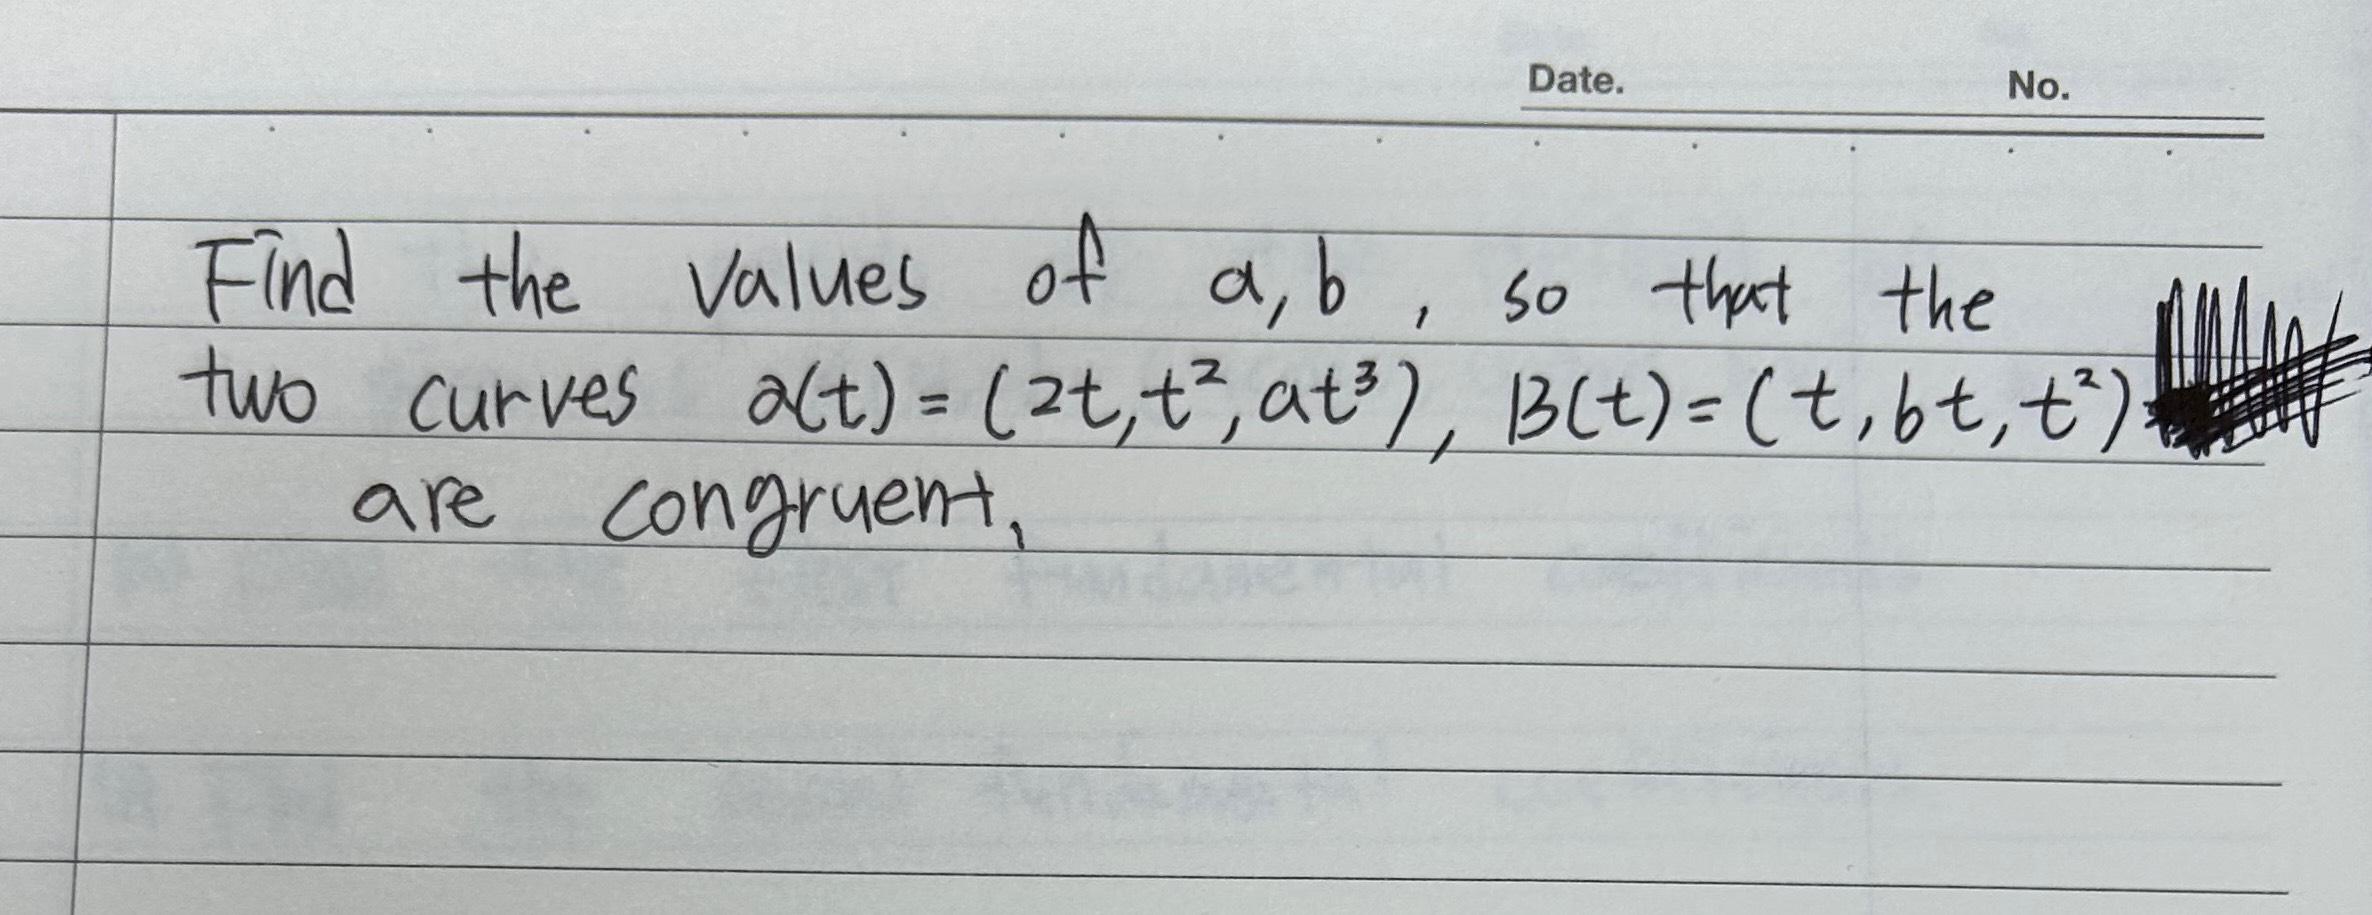 Date. No.
Find the values of a, b, so that the
two curves α(t) = (2t, t², at³), B(t) = (t, bt, t²)
are congruent,